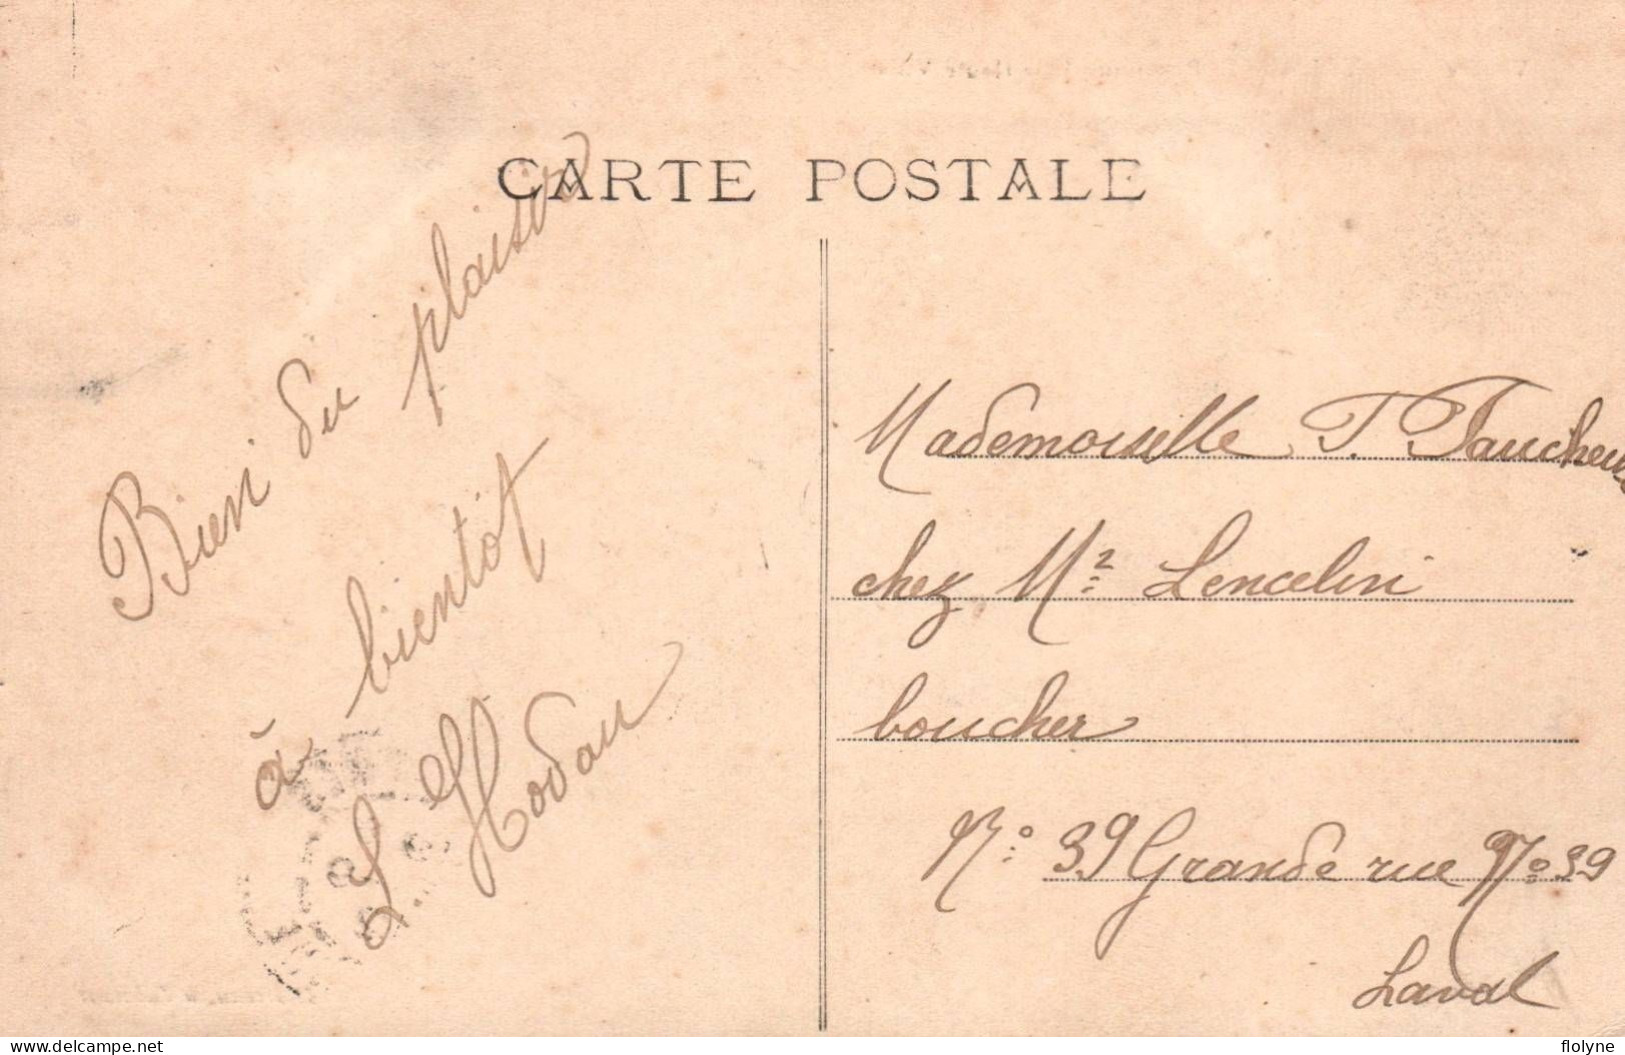 CARTE POSTALE
Bien du plaisir
à bientôt
L. Hodau
Mademoiselle T. Faucheux
chez Mr Lencelin
boucher
No 39 Grande rue No 39
Laval
delcampe.net
flolyne